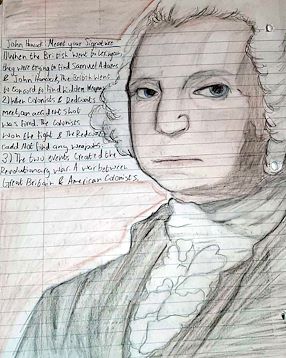 John Hancock: Meant your signature
1) When the British went to Lexington
they were trying to find Samuel Adams
& John Hancock, The British went
to Concord to find hidden Weapons
2) When Colonists & Redcoats
meet, an accident shot
was fired. The Colonists
won the fight & The Redcoats
could Not find any weapons.
3) The two events created the
Revolutionary war. A war between
Great Britain & American Colonists.